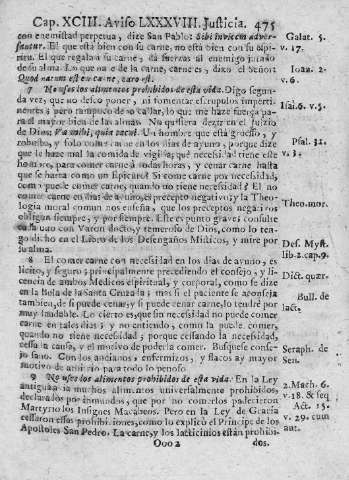 Cap. XCIII. Aviso LXXXVIII. Justicia. 475
con enemistad perpetua, dize San Pablo: Sibi invicem adver-
santur. El que està bien con su carne, no està bien con su espi-
ritu. El que regala à su carne, dà fuerças al enemigo jurado
de su alma. Lo que nace de la carne, carne es, dixo el Señor:
Quod natum est ex carne, caro est.
7 No uses los alimentos prohibidos de esta vida. Digo segunda
vez, que no deseo poner, ni fomentar escrupulos imperti-
nentes; pero tampoco devo callar, lo que me haze fuerça pa-
ra el mayor bien de las almas. No quisiera dezir en el juizio
de Dios: Væ mihi, quia tacui. Un hombre que està gruesso, y
robusto, y solo come carne en los dias de ayuno, porque dize
que le haze mal la comida de vigilia, què necessidad tiene este
hombre, para comer carne à todas horas, y cenar carne hasta
que se harta como un Epicureo? Si come carne por necessidad,
como puede comer carne, quando no tiene necessidad? El no
comer carne en dias de ayuno, es precepto negativo; y la Theo-
logia moral comun nos enseña, que los preceptos negativos
obligan siempre, y por siempre. Este es punto grave: consulte
cada uno con Varon docto, y temeroso de Dios, como lo ten-
go dicho en el Libro de los Desengaños Misticos, y mire por
su alma.
8 El comer carne con necessidad en los dias de ayuno, es
licito, y seguro; principalmente precediendo el consejo, y li-
cencia de ambos Medicos espiritual, y corporal, como se dize
en la Bula de la Santa Cruzada; mas si el paciente se aconseja
tambien, de si puede cenar, y si puede cenar carne, lo tendrè por
muy laudable. Lo cierto es, que sin necessidad no puede comer
carne en dias tales; y no entiendo, como la puede comer,
quando no tiene necessidad; porque cessando la necessidad,
cessa la causa, y el motivo de poderla comer. Busquese conse-
jo sano. Con los ancianos, enfermizos, y flacos ay mayor
motivo de animo para todo lo penoso
9 No uses los alimentos prohibidos de esta vida. En la Ley
antigua avia muchos alimentos universalmente prohibidos,
declarados por inmundos, que por no comerlos padecieron
Martyrio los Insignes Macabeos. Pero en la Ley de Gracia
cessaron essas prohibiciones, como lo explicò el Principe de los
Apostoles San Pedro. La carne, y los lacticinios estàn prohibi-
Ooo 2 dos.
Galat. 5.
v. 17.
Ioan. 2.
v. 6.
Isai. 6. v. 5.
Psal. 32.
v. 3.
Theo. mor.
Des. Myst.
lib. 2. cap. 9.
Dict. quær.
Bull. de
lact.
Seraph. de
Sen.
2. Mach. 6.
v. 18. & seq
Act. 15.
v. 29. cum
ant.